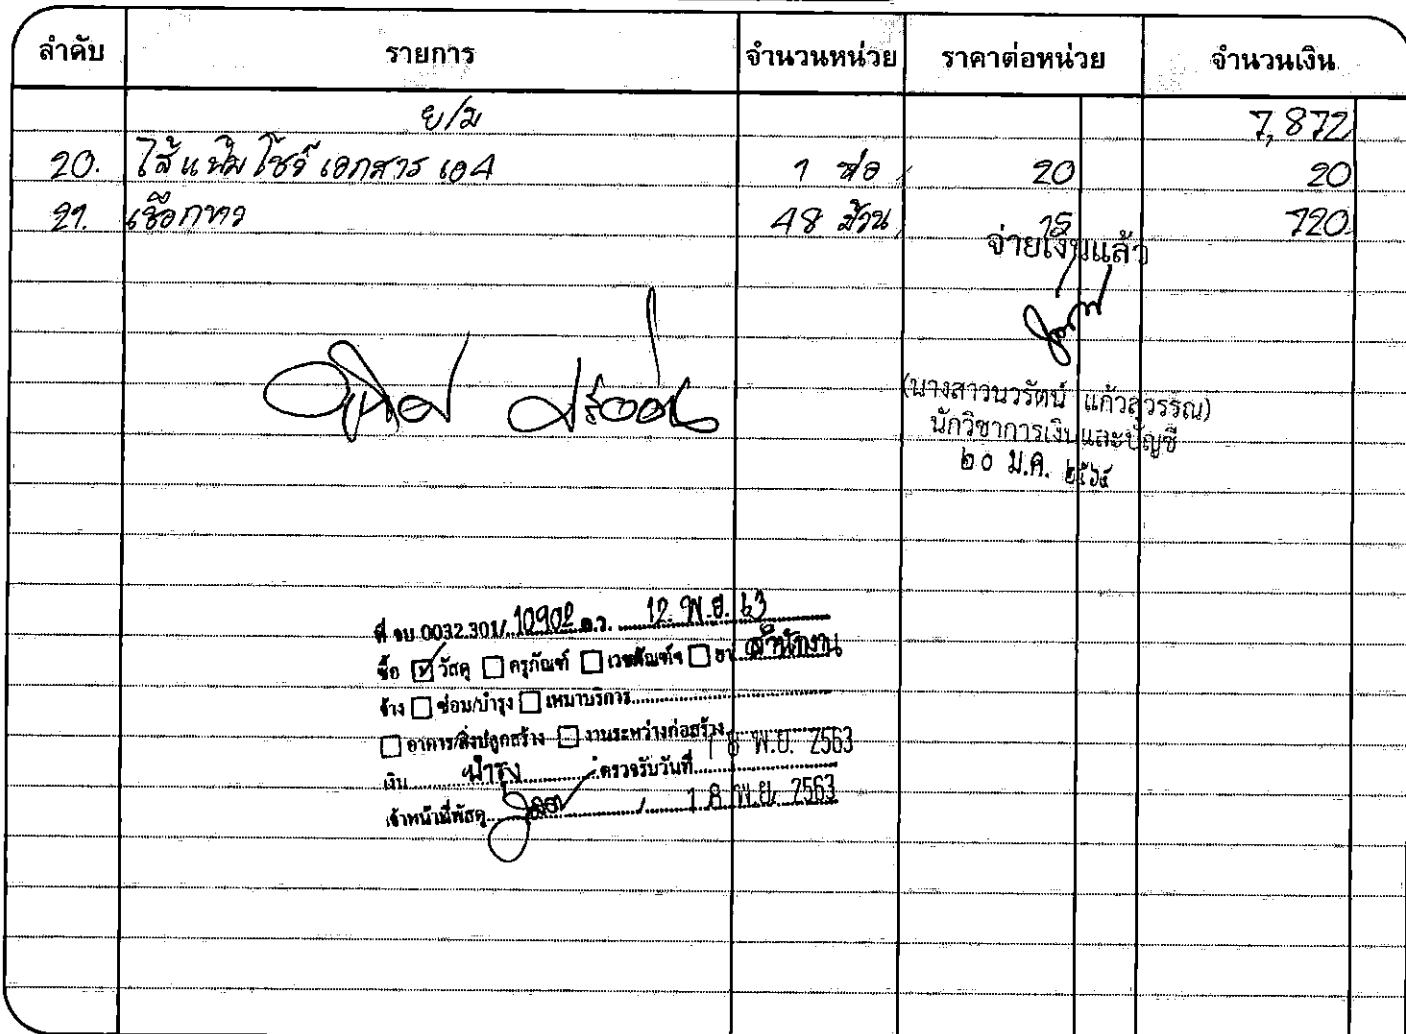 ลำดับ รายการ จำนวนหน่วย ราคาต่อหน่วย จำนวนเงิน
ย/ม 7,872
20. ไส้แฟ้มโชว์เอกสาร เอ4 1 ห่อ 20 20
21. เชือกขาว 48 ม้วน 15 720
จ่ายเงินแล้ว
(นางสาวนวรัตน์ แก้วสุวรรณ)
นักวิชาการเงินและบัญชี
๒๐ ม.ค. ๒๕๖๔
ที่ จบ 0032.301/ 10902 ล.ว. 12 พ.ย. 63
ซื้อ วัสดุ ครุภัณฑ์ เวชภัณฑ์ฯ ยา สำนักงาน
จ้าง ซ่อม/บำรุง เหมาบริการ
อาคาร/สิ่งปลูกสร้าง งานระหว่างก่อสร้าง
เงิน บำรุง ตรวจรับวันที่ 18 พ.ย. 2563
เจ้าหน้าที่พัสดุ / 18 พ.ย. 2563